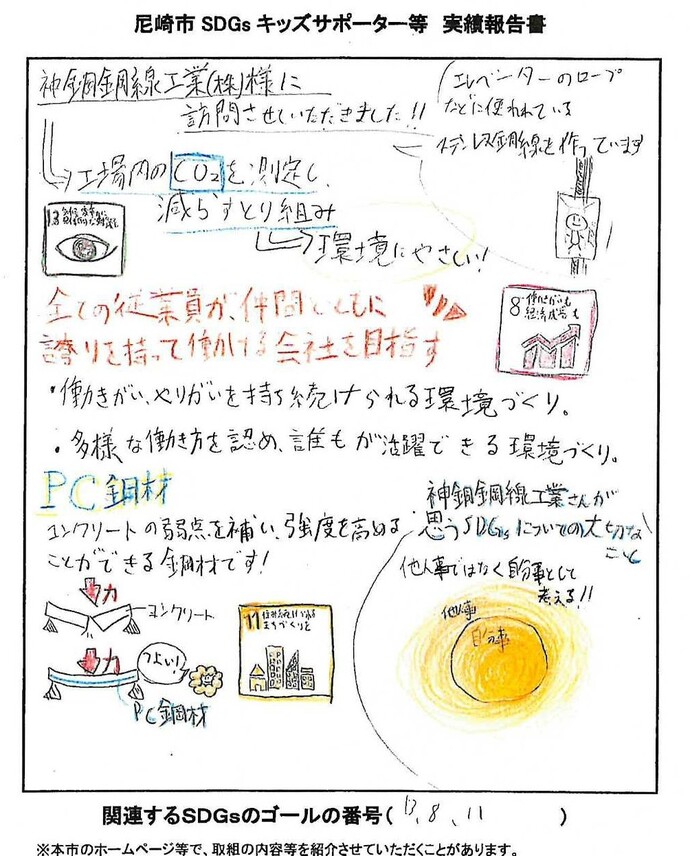 尼崎市 SDGs キッズサポーター等 実績報告書
神鋼鋼線工業(株)様に
訪問させていただきました!!
エレベーターのロープ
などに使われている
ステンレス鋼線を作っています
工場内のCO2を測定し、
減らすとり組み
環境にやさしい!
13
全ての従業員が、仲間とともに
誇りを持って働ける会社を目指す
8 働きがいも
経済成長も
・働きがい、やりがいを持ち続けられる環境づくり。
・多様な働き方を認め、誰もが活躍できる環境づくり。
PC鋼材
コンクリートの弱点を補い、強度を高める
ことができる鋼材です!
神鋼鋼線工業さんが
思うSDGsについての大切な
こと
他人事ではなく自分事として
考える!!
他人事
自分事
力
コンクリート
力
つよい!
PC鋼材
11 住み続けられる
まちづくりを
関連するSDGsのゴールの番号( 13、8、11 )
※本市のホームページ等で、取組の内容等を紹介させていただくことがあります。